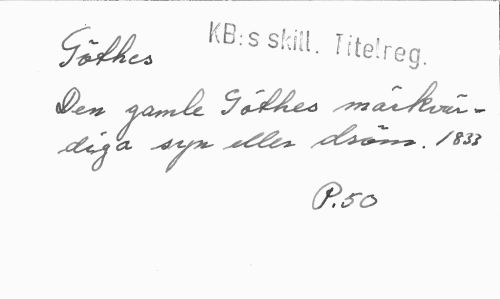 Göthes
KB:s skill. Titelreg.
Den gamle Göthes märkvär-
diga syn eller dröm. 1833
P.50